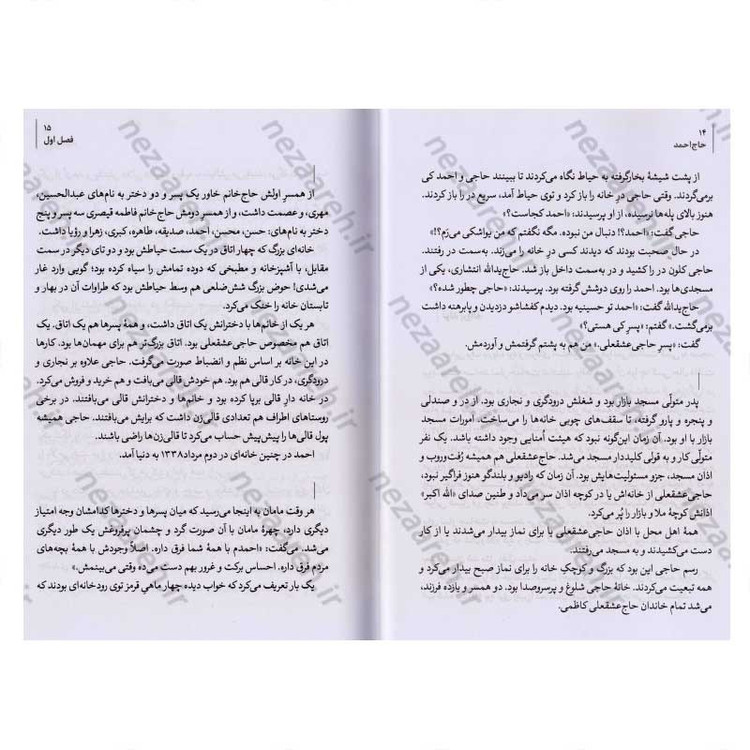 ۱۴
حاج‌احمد
از پشت شیشهٔ بخارگرفته به حیاط نگاه می‌کردند تا ببینند حاجی و احمد کی
برمی‌گردند. وقتی حاجی درِ خانه را باز کرد و توی حیاط آمد، سریع در را باز کردند.
هنوز بالای پله‌ها نرسیده، از او پرسیدند: «احمد کجاست؟»
حاجی گفت: «احمد؟! دنبال من نبوده. مگه نگفتم که من یواشکی می‌رَم؟!»
در حال صحبت بودند که دیدند کسی درِ خانه را می‌زند. به‌سمت در رفتند.
حاجی کلون در را کشید و در به‌سمت داخل باز شد. حاج‌یدالله انتشاری، یکی از
مسجدی‌ها بود. احمد را روی دوشش گرفته بود. پرسیدند: «حاجی چطور شده؟»
حاج‌یدالله گفت: «احمد تو حسینیه بود. دیدم کفشاشو دزدیدن و پابرهنه داشت
برمی‌گشت.» گفتم: «پسر کی هستی؟»
گفت: «پسرِ حاجی‌عشقعلی.» من هم به پشتم گرفتمش و آوردمش.
پدر متولّی مسجد بازار بود و شغلش درودگری و نجاری بود. از در و صندلی
و پنجره و پارو گرفته، تا سقف‌های چوبی خانه‌ها را می‌ساخت. امورات مسجد
بازار با او بود. آن زمان این‌گونه نبود که هیئت اُمنایی وجود داشته باشد. یک نفر
متولّی کار و به قولی کلیددار مسجد می‌شد. حاج‌عشقعلی هم همیشه رُفت‌وروب و
اذان مسجد، جزو مسئولیت‌هایش بود. آن زمان که رادیو و بلندگو هنوز فراگیر نبود،
حاجی‌عشقعلی از خانه‌اش یا در کوچه اذان سر می‌داد و طنین صدای «الله اکبر»
اذانش کوچهٔ ملا و بازار را پُر می‌کرد.
همهٔ اهل محل با اذان حاجی‌عشقعلی یا برای نماز بیدار می‌شدند یا از کار
دست می‌کشیدند و به مسجد می‌رفتند.
رسم حاجی این بود که بزرگ و کوچکِ خانه را برای نماز صبح بیدار می‌کرد و
همه تبعیت می‌کردند. خانهٔ حاجی شلوغ و پرسروصدا بود. دو همسر و یازده فرزند،
می‌شد تمام خاندان حاج‌عشقعلی کاظمی.
۱۵
فصل اول
از همسرِ اولش حاج‌خانم خاور یک پسر و دو دختر به نام‌های عبدالحسین،
مهری، و عصمت داشت، و از همسرِ دومش حاج‌خانم فاطمه قیصری سه پسر و پنج
دختر به نام‌های: حسن، محسن، احمد، صدیقه، طاهره، کبری، زهرا و رؤیا داشت.
خانه‌ای بزرگ که چهار اتاق در یک سمت حیاطش بود و دو تای دیگر در سمت
مقابل، با آشپزخانه و مطبخی که دوده تمامش را سیاه کرده بود؛ گویی وارد غار
می‌شدی! حوض بزرگ شش‌ضلعی هم وسط حیاطش بود که طراوات آن در بهار و
تابستان خانه را خنک می‌کرد.
هر یک از خانم‌ها با دخترانش یک اتاق داشت، و همهٔ پسرها هم یک اتاق. یک
اتاق هم مخصوص حاجی‌عشقعلی بود. اتاق بزرگ‌تر هم برای مهمان‌ها بود. کارها
در این خانه بر اساس نظم و انضباط صورت می‌گرفت. حاجی علاوه بر نجاری و
درودگری، در کار قالی هم بود. هم خودش قالی می‌بافت و هم خرید و فروش می‌کرد.
در خانه دار قالی برپا کرده بود و خانم‌ها و دخترانش قالی می‌بافتند. در برخی
روستاهای اطراف هم تعدادی قالی‌زن داشت که برایش می‌بافتند. حاجی همیشه
پول قالی‌ها را پیش‌پیش حساب می‌کرد تا قالی‌زن‌ها راضی باشند.
احمد در چنین خانه‌ای در دوم مرداد ۱۳۳۸ به دنیا آمد.
هر وقت مامان به اینجا می‌رسید که میان پسرها و دخترها کدامشان وجه امتیاز
دیگری دارد، چهرهٔ مامان با آن صورت گرد و چشمان پرفروغش یک طور دیگری
می‌شد. می‌گفت: «احمدم با همهٔ شما فرق داره. اصلاً وجودش با همهٔ بچه‌های
مردم فرق داره. احساس برکت و غرور بهم دست می‌ده وقتی می‌بینمش.»
یک بار تعریف می‌کرد که خواب دیده چهار ماهیِ قرمز توی رودخانه‌ای بودند که
nezaareh.ir